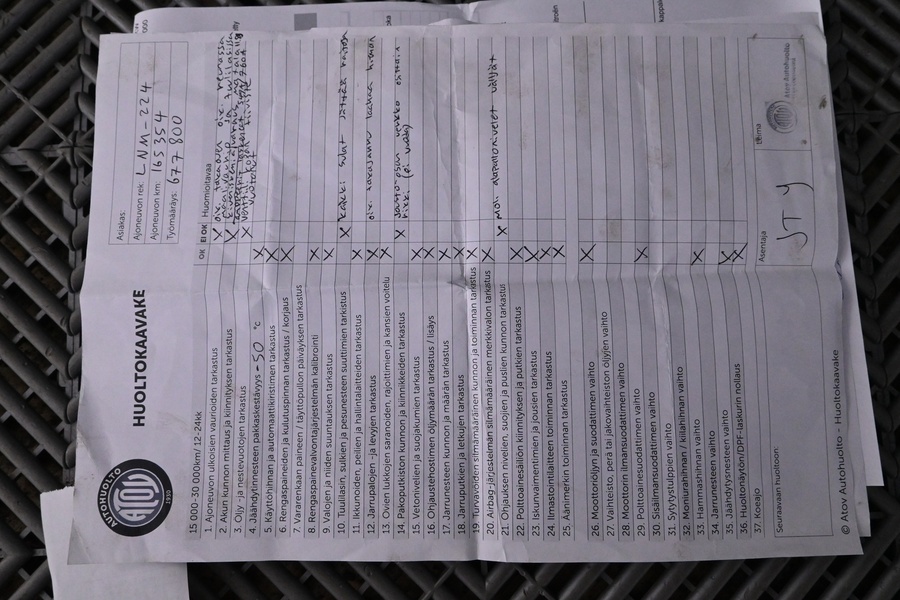 AUTOHUOLTO
ATOY
1930
HUOLTOKAAVAKE
Asiakas:
Ajoneuvon rek: LNM-224
Ajoneuvon km: 165354
Työmääräys: 677 800
15 000-30 000km/ 12-24kk
OK EI OK Huomioitavaa
1. Ajoneuvon ulkoisten vaurioiden tarkastus X
2. Akun kunnon mittaus ja kiinnityksen tarkastus X
3. Öljy -ja nestevuotojen tarkastus X
4. Jäähdytinnesteen pakkaskestävyys -50 °c X
5. Käyttöhihnan ja automaattikiristimen tarkastus X
6. Rengaspaineiden ja kulutuspinnan tarkastus / korjaus X
7. Vararenkaan paineen / täyttöpullon päiväyksen tarkastus
8. Rengaspainevalvontajärjestelmän kalibrointi X
9. Valojen ja niiden suuntauksen tarkastus X
10. Tuulilasin, sulkien ja pesunesteen suuttimien tarkistus X
11. Ikkunoiden, peilien ja hallintalaitteiden tarkastus X
12. Jarrupalojen -ja levyjen tarkastus X oik. takajarru laahaa hieman
13. Ovien lukkojen saranoiden, rajoittimien ja kansien voitelu X
14. Pakoputkiston kunnon ja kiinnikkeiden tarkastus X
15. Vetonivelien ja suojakumien tarkastus X
16. Ohjaustehostimen öljymäärän tarkastus / lisäys X
17. Jarrunesteen kunnon ja määrän tarkastus X
18. Jarruputkien ja letkujen tarkastus X
19. Turvavöiden silmämääräinen kunnon ja toiminnan tarkastus X
20. Airbag-järjestelmän silmämääräinen merkkivalon tarkastus X
21. Ohjauksen nivelien, suojien ja puslien kunnon tarkastus X Mol. alapallonivelet väljät
22. Polttoainesäiliön kiinnityksen ja putkien tarkastus X
23. Iskunvaimentimien ja jousien tarkastus X
24. Ilmastointilaitteen toiminnan tarkastus X
25. Äänimerkin toiminnan tarkastus X
26. Moottoriöljyn ja suodattimen vaihto X
27. Vaihteisto, perä tai jakovaihteiston öljyjen vaihto
28. Moottorin ilmansuodattimen vaihto
29. Polttoainesuodattimen vaihto X
30. Sisäilmansuodattimen vaihto
31. Sytytystulppien vaihto
32. Moniurahihnan / kiilahihnan vaihto
33. Hammashihnan vaihto X
34. Jarrunesteen vaihto
35. Jäähdytysnesteen vaihto X
36. Huoltonäytön/DPF-laskurin nollaus X
37. Koeajo
Seuraavaan huoltoon:
Asentaja
JTY
Leima
Atoy Autohuolto
© Atoy Autohuolto - Huoltokaavake